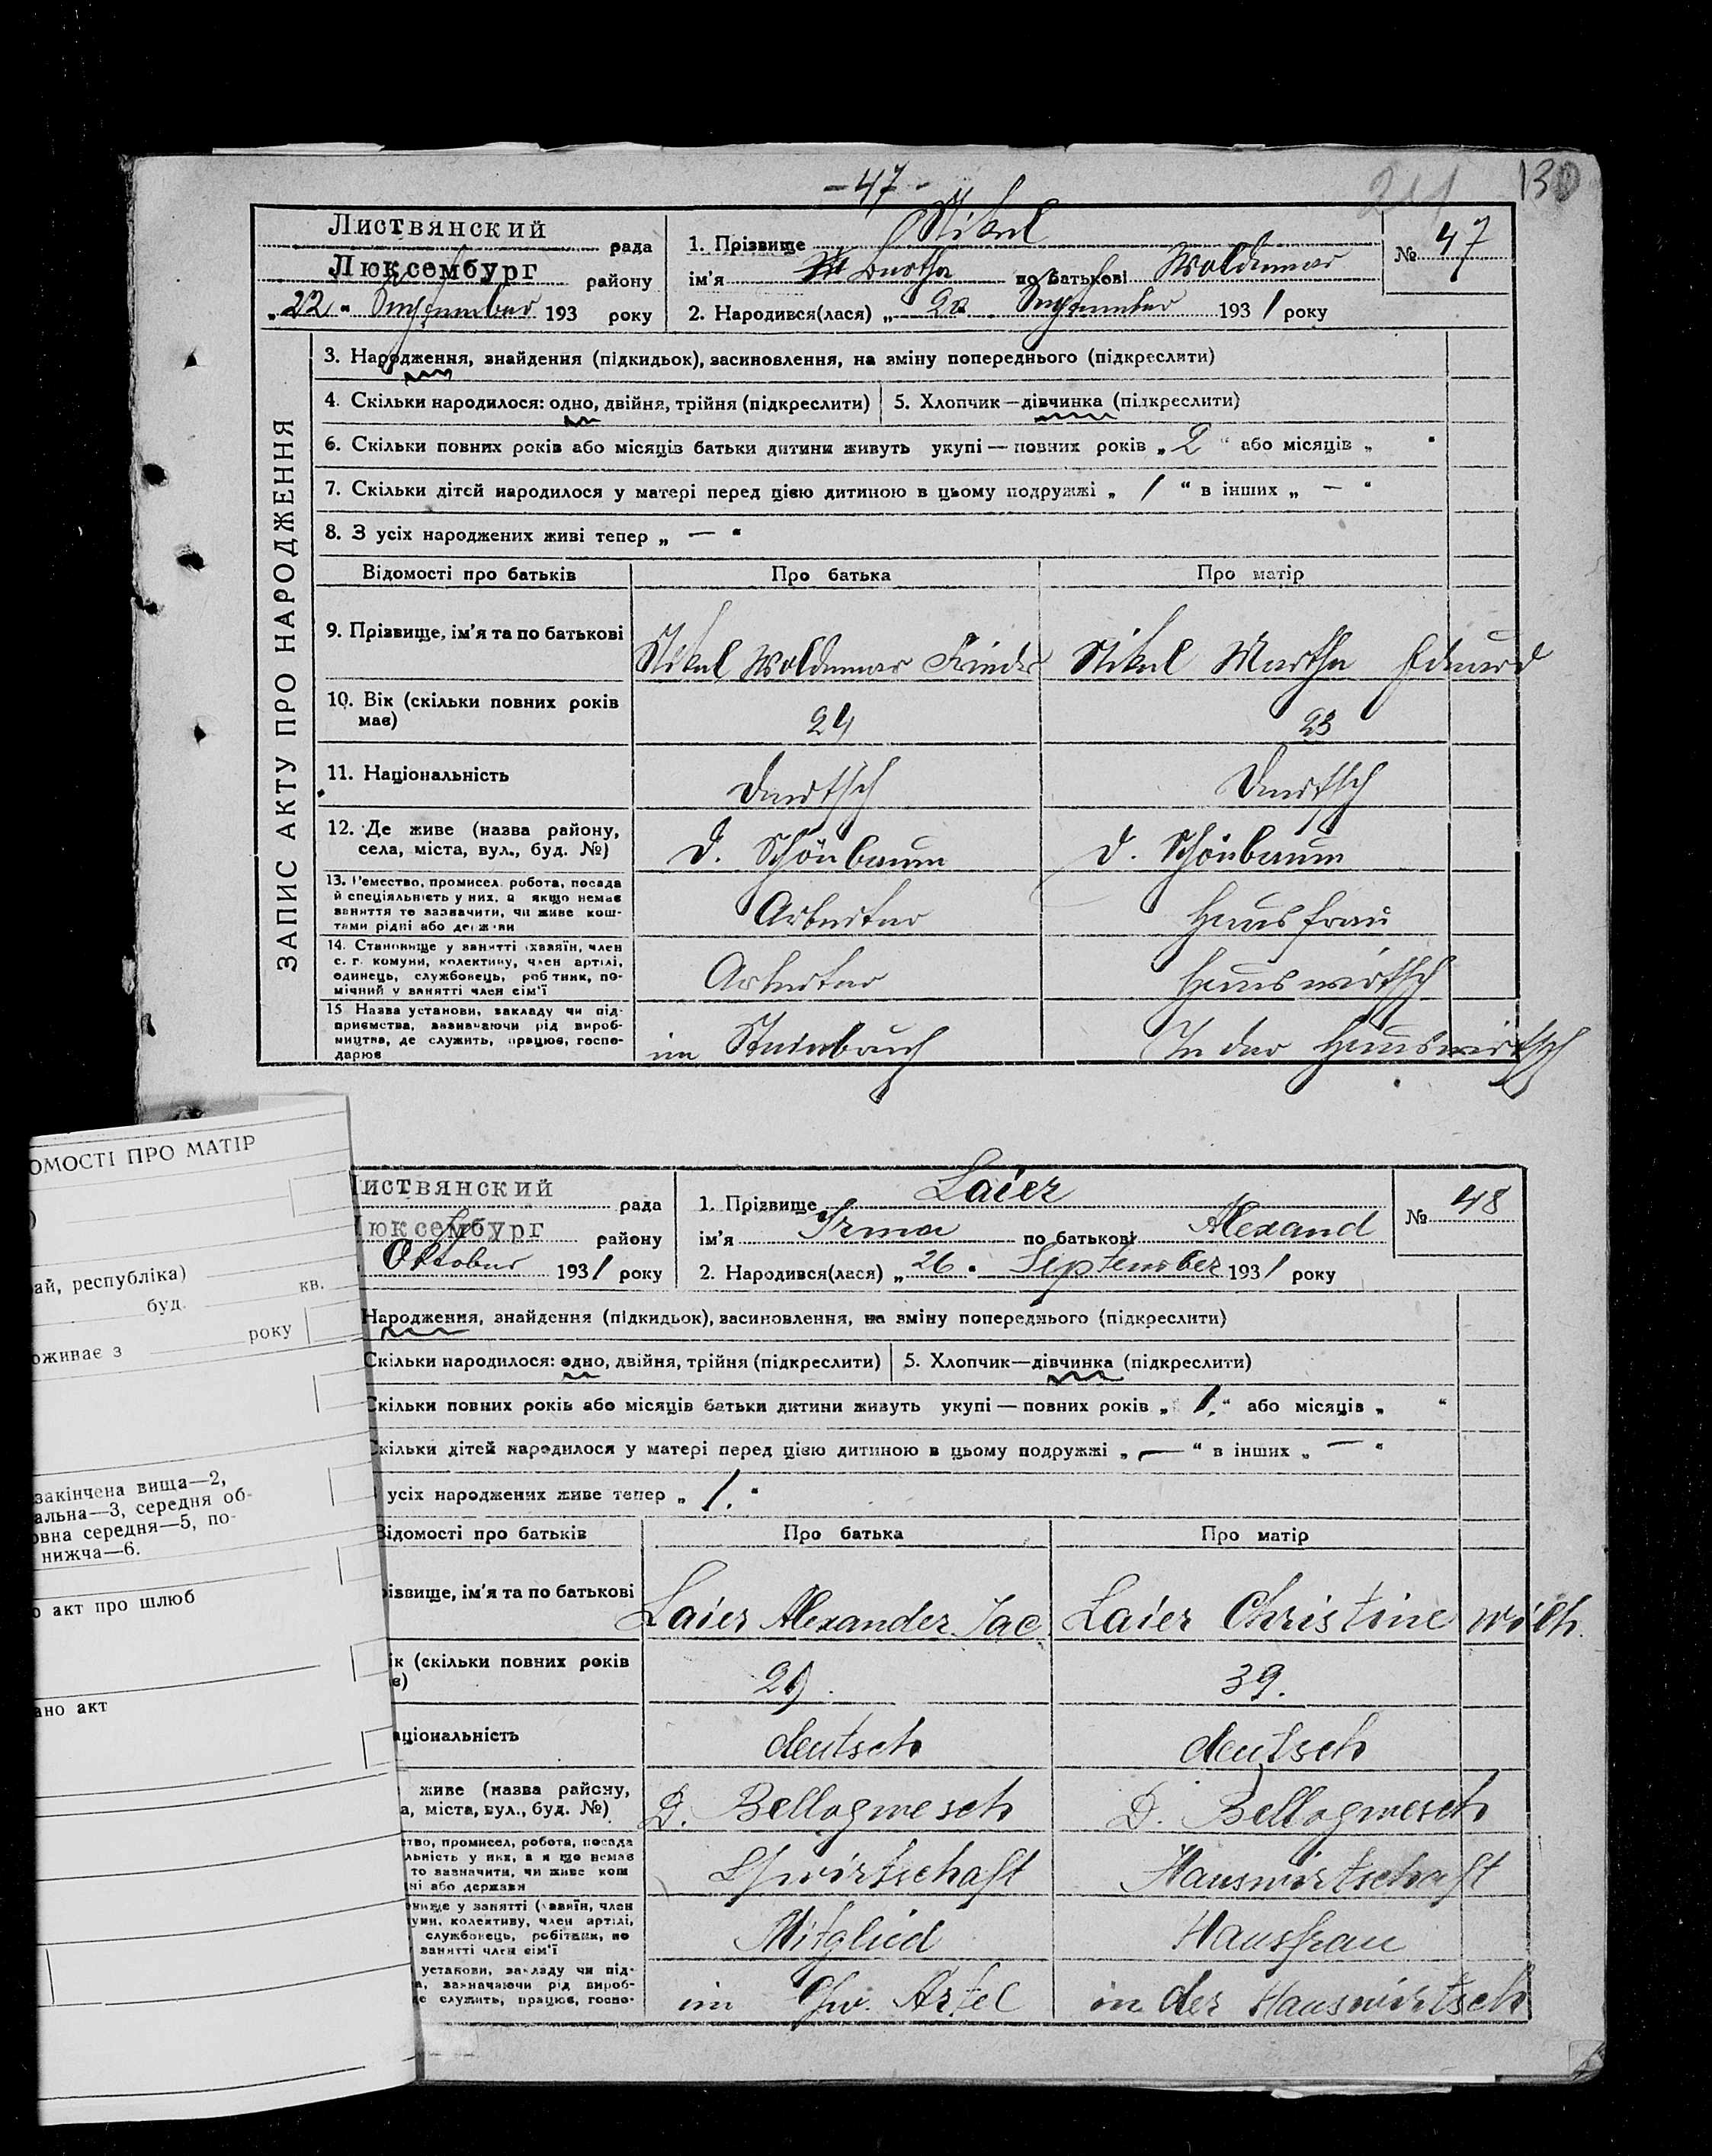 - 47 -
130
Листвянский рада
Люксембург району
"22" September 193 року
1. Прізвище Stikel
№ 47
ім'я Bertha по батькові Woldemar
2. Народився(лася) „22. September 1931 року
ЗАПИС АКТУ ПРО НАРОДЖЕННЯ
3. Народження, знайдення (підкидьок), засиновлення, на зміну попереднього (підкреслити)
4. Скільки народилося: одно, двійня, трійня (підкреслити)
5. Хлопчик—дівчинка (підкреслити)
6. Скільки повних років або місяців батьки дитини живуть укупі — повних років „2“ або місяців „ “
7. Скільки дітей народилося у матері перед цією дитиною в цьому подружжі „ 1 “ в інших „ — “
8. З усіх народжених живі тепер „ — “
Відомості про батьків
Про батька
Про матір
9. Прізвище, ім'я та по батькові
Stikel Woldemar Frieder
Stikel Martha Eduard
10. Вік (скільки повних років має)
24
23
11. Національність
Deutsch
Deutsch
12. Де живе (назва району, села, міста, вул., буд. №)
D. Schönbaum
D. Schönbaum
13. Ремество, промисел, робота, посада
й спеціяльність у них, а якщо немає
заняття то зазначити, чи живе кош-
тами рідні або держави
Arbeiter
Hausfrau
14. Становище у занятті (хазяїн, член
с. г. комуни, колективу, член артілі,
одинець, службовець, робітник, по-
мічний у занятті член сім'ї
Arbeiter
Hauswirtsch
15 Назва установи, закладу чи під-
приємства, зазначаючи рід вироб-
ництва, де служить, працює, госпо-
дарює
im Steinbruch
In der Hauswirtsch
ОМОСТІ ПРО МАТІР
)
ай, республіка)
буд. кв.
оживає з року
закінчена вища—2,
альна—3, середня об-
овна середня—5, по-
нижча—6.
о акт про шлюб
ано акт
иствянский рада
юксембург району
Oktober 1931 року
1. Прізвище Laier
№ 48
ім'я Irma по батькові Alexand
2. Народився(лася) „26. September 1931 року
Народження, знайдення (підкидьок), засиновлення, на зміну попереднього (підкреслити)
Скільки народилося: одно, двійня, трійня (підкреслити)
5. Хлопчик—дівчинка (підкреслити)
Скільки повних років або місяців батьки дитини живуть укупі — повних років „ 1. “ або місяців „ “
Скільки дітей народилося у матері перед цією дитиною в цьому подружжі „ — “ в інших „ — “
усіх народжених живе тепер „ 1. “
Відомості про батьків
Про батька
Про матір
різвище, ім'я та по батькові
Laier Alexander Jac
Laier Christine Wilh.
ік (скільки повних років
є)
29.
39.
аціональність
deutsch
deutsch
живе (назва району,
а, міста, вул., буд. №)
D. Bellogwesch
D. Bellogwesch
тво, промисел, робота, посада
льність у них, а якщо немає
то зазначити, чи живе кош
ні або держави
Lwirtschaft
Hauswirtschaft
вище у занятті (хазяїн, член
уни, колективу, член артілі,
службовець, робітник, по
занятті член сім'ї
Mitglied
Hausfrau
установи, закладу чи під-
а, зазначаючи рід вироб-
е служить, працює, госпо-
im Artel
in der Hauswirtsch